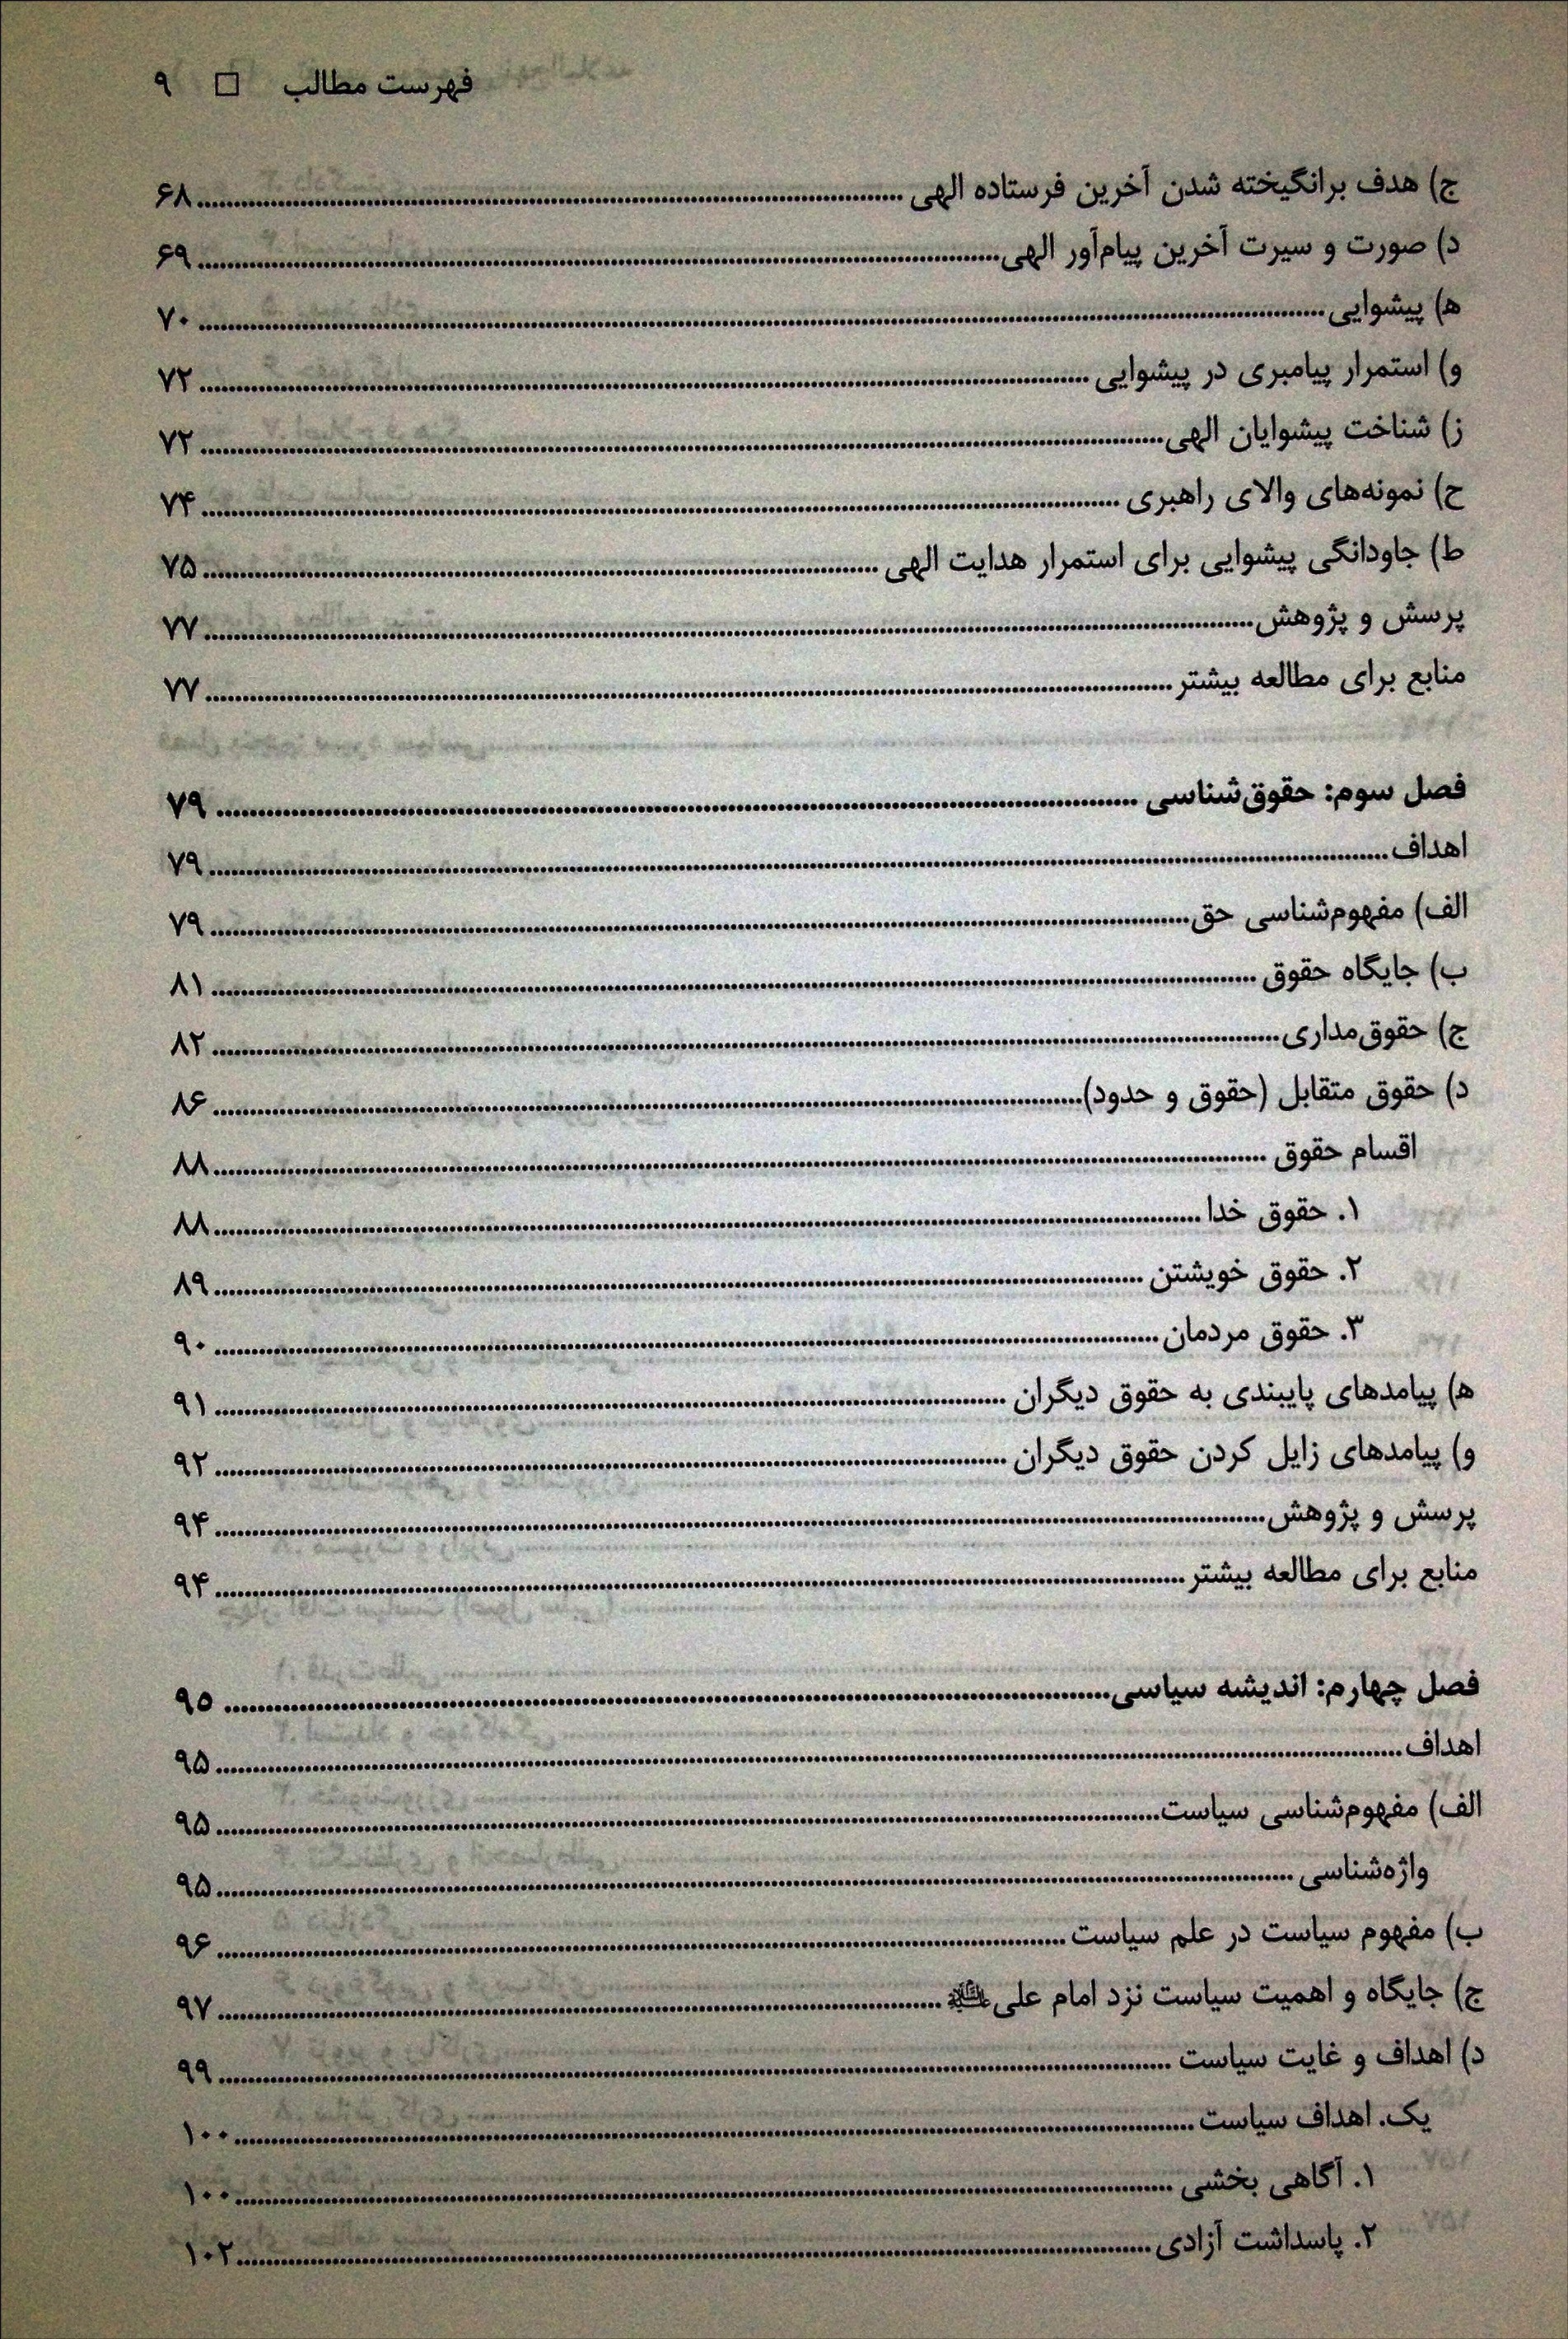 فهرست مطالب □ ۹
ج) هدف برانگیخته شدن آخرین فرستاده الهی ........ ۶۸
د) صورت و سیرت آخرین پیام‌آور الهی ........ ۶۹
ه) پیشوایی ........ ۷۰
و) استمرار پیامبری در پیشوایی ........ ۷۲
ز) شناخت پیشوایان الهی ........ ۷۲
ح) نمونه‌های والای راهبری ........ ۷۴
ط) جاودانگی پیشوایی برای استمرار هدایت الهی ........ ۷۵
پرسش و پژوهش ........ ۷۷
منابع برای مطالعه بیشتر ........ ۷۷
فصل سوم: حقوق‌شناسی ........ ۷۹
اهداف ........ ۷۹
الف) مفهوم‌شناسی حق ........ ۷۹
ب) جایگاه حقوق ........ ۸۱
ج) حقوق‌مداری ........ ۸۲
د) حقوق متقابل (حقوق و حدود) ........ ۸۶
اقسام حقوق ........ ۸۸
۱. حقوق خدا ........ ۸۸
۲. حقوق خویشتن ........ ۸۹
۳. حقوق مردمان ........ ۹۰
ه) پیامدهای پایبندی به حقوق دیگران ........ ۹۱
و) پیامدهای زایل کردن حقوق دیگران ........ ۹۲
پرسش و پژوهش ........ ۹۴
منابع برای مطالعه بیشتر ........ ۹۴
فصل چهارم: اندیشه سیاسی ........ ۹۵
اهداف ........ ۹۵
الف) مفهوم‌شناسی سیاست ........ ۹۵
واژه‌شناسی ........ ۹۵
ب) مفهوم سیاست در علم سیاست ........ ۹۶
ج) جایگاه و اهمیت سیاست نزد امام علی علیه‌السلام ........ ۹۷
د) اهداف و غایت سیاست ........ ۹۹
یک. اهداف سیاست ........ ۱۰۰
۱. آگاهی بخشی ........ ۱۰۰
۲. پاسداشت آزادی ........ ۱۰۲